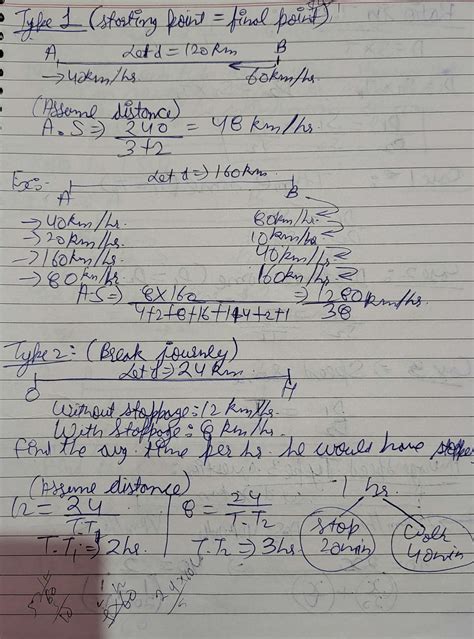 Type 1 (starting point = final point)
A Let d = 120km B
→ 40km/hr. 60km/hr.
(Assume distance)
A.S ⇒ 240 / 3+2 = 48 km/hr.
Exs:- A Let d ⇒ 160km B
→ 40km/hr. 80km/hr.
→ 20km/hr. 10km/hr.
→ 160km/hr. 40km/hr.
→ 80km/hr. 160km/hr.
A.S ⇒ 8×160 / 4+2+8+16+1+4+2+1 ⇒ 1280 / 38 km/hr.
Type 2: (Break journey)
O Let d ⇒ 24km H
Without stoppage = 12 km/hr.
With stoppage = 8 km/hr.
find the avg. time per hr. he would have stoppe
(Assume distance) 1 hr.
12 = 24 / T.T1 8 = 24 / T.T2 stop 20min Cycle 40min
T.T1 ⇒ 2hr. T.T2 ⇒ 3hr.